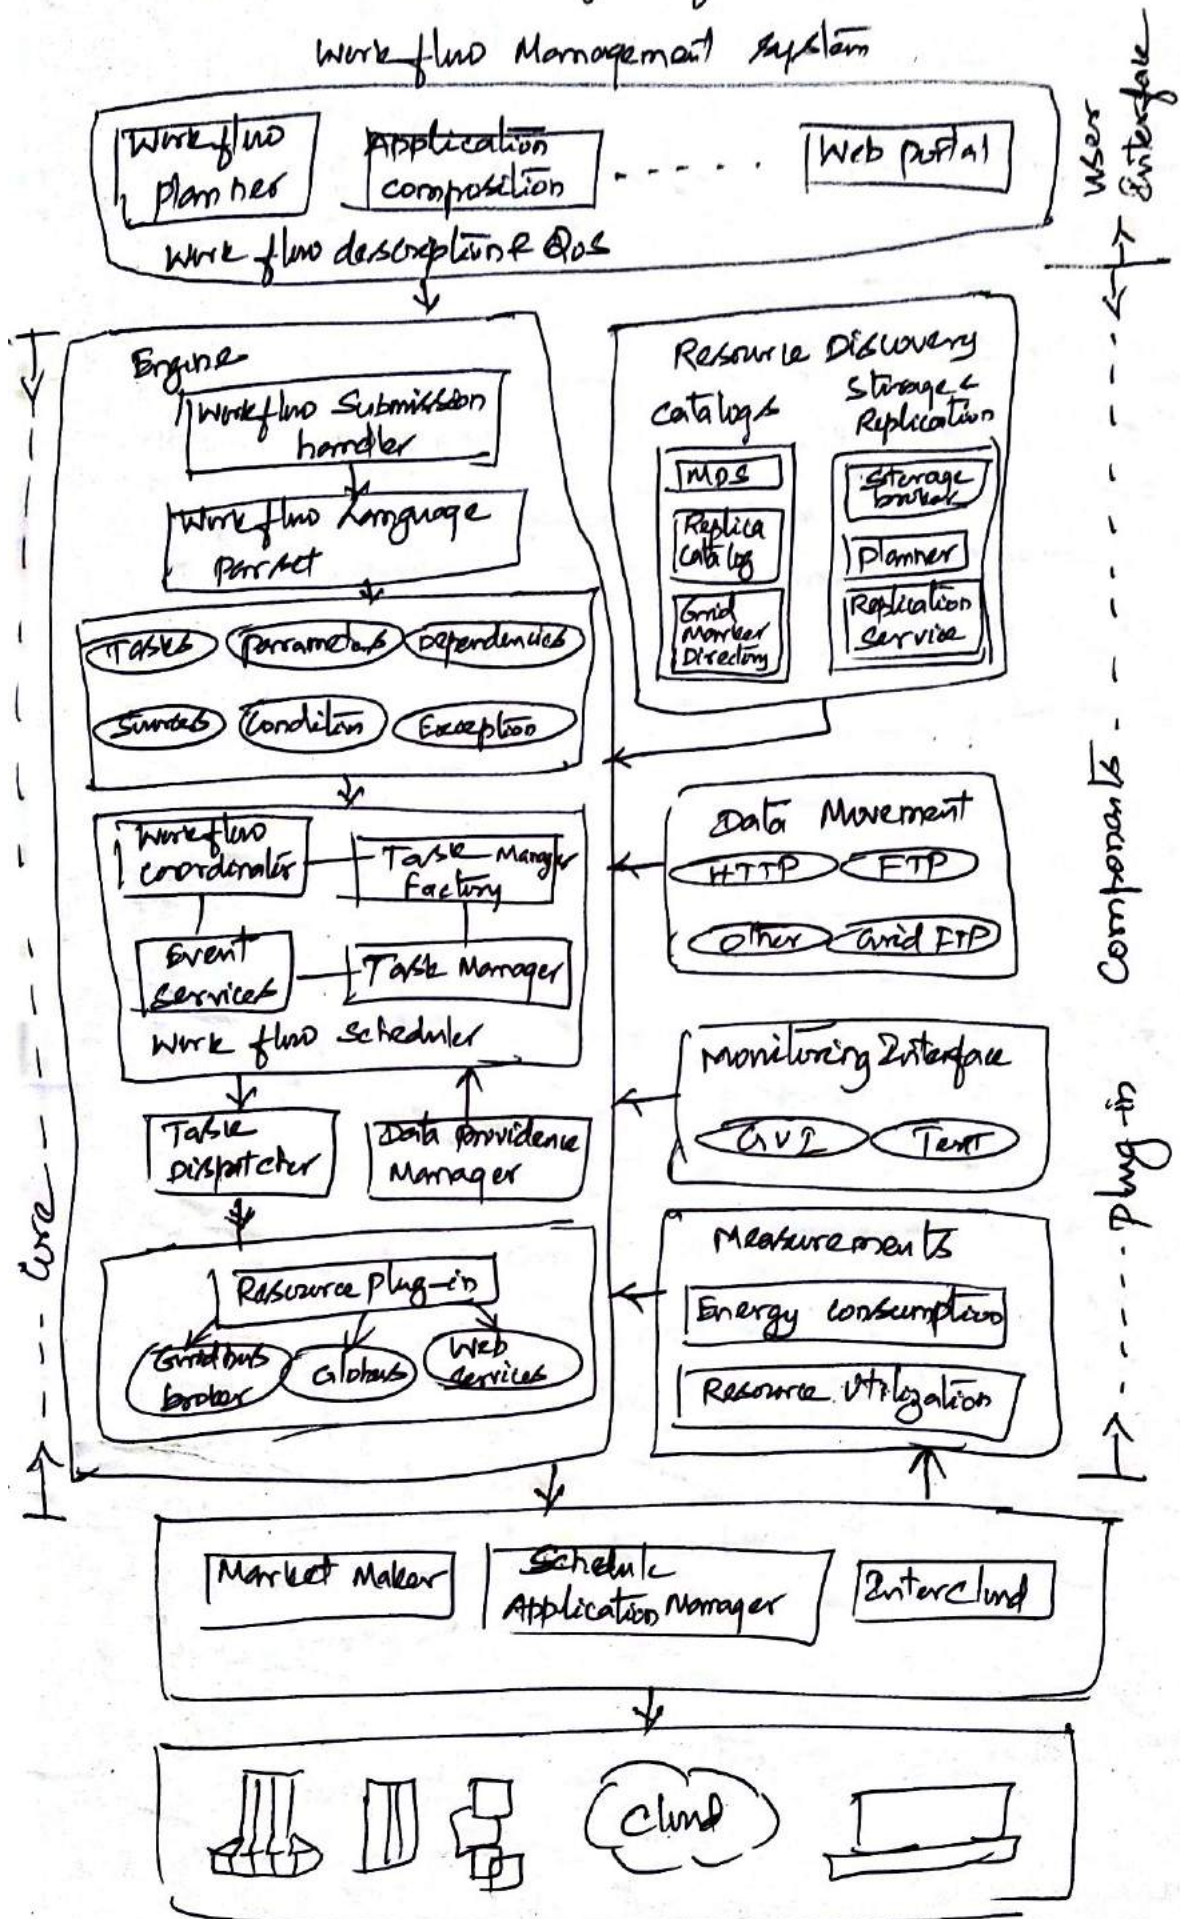 Workflow Management System
User Interface
Workflow planner
Application composition
Web portal
Workflow description & QoS
Engine
Workflow Submission handler
Workflow Language
Tasks
Parameters
Dependencies
Condition
Exception
Workflow coordinator
Task Manager Factory
Event Services
Task Manager
Workflow Scheduler
Task Dispatcher
Data Providence Manager
Resource Plug-in
Gridbus broker
Globus
Web services
Core
Resource Discovery
Catalogs
Storage & Replication
MDS
Replica Catalog
Directory
Storage broker
Planner
Replication Service
Data Movement
HTTP
FTP
Other
Grid FTP
Monitoring Interface
GUI
Text
Measurements
Energy consumption
Resource Utilization
Components
Plug-in
Market Maker
Schedule Application Manager
InterCloud
Cloud